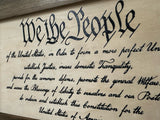 We the People
of the United States, in Order to form a more perfect Union,
establish Justice, insure domestic Tranquility,
provide for the common defence, promote the general Welfare,
and secure the Blessings of Liberty to ourselves and our Posterity
do ordain and establish this Constitution for the
United States of America